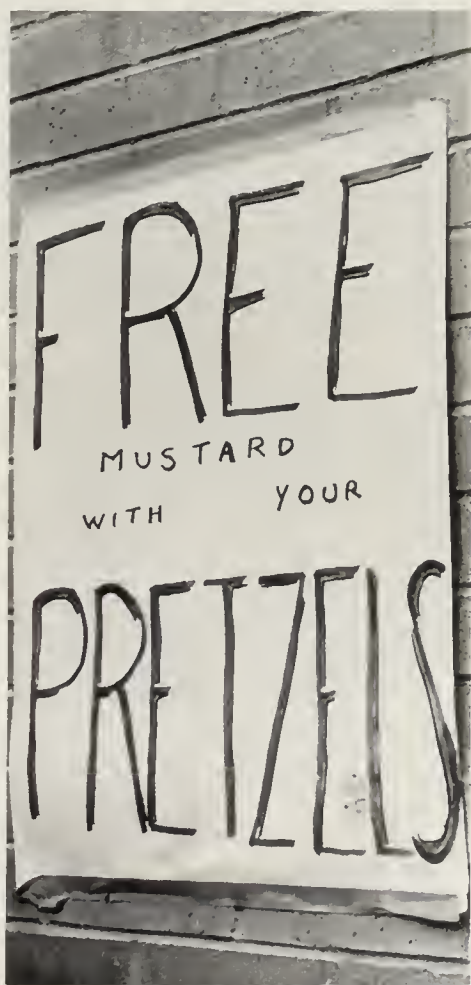 FREE
MUSTARD
WITH YOUR
PRETZELS